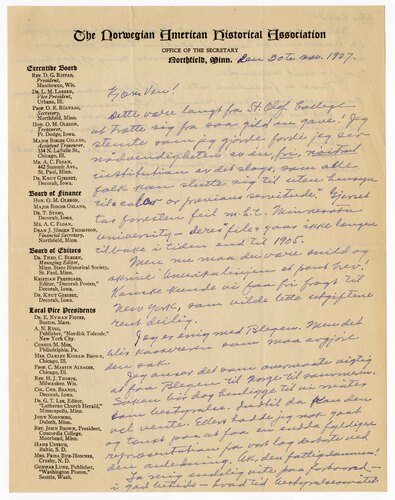 The Norwegian American Historical Association
OFFICE OF THE SECRETARY
Northfield, Minn. den 20de nov. 1927.
Executive Board
REV. D. G. RISTAD,
President,
Manitowoc, Wis.
DR. L. M. LARSON,
Vice President,
Urbana, Ill.
PROF. O. E. RÖLVAAG,
Secretary,
Northfield, Minn.
HON. O. M. OLESON,
Treasurer,
Ft. Dodge, Iowa.
MAJOR BIRGER OSLAND,
Assistant Treasurer,
134 N. LaSalle St.,
Chicago, Ill.
MR. A. C. FLOAN,
442 Summit Ave.,
St. Paul, Minn.
DR. KNUT GJERSET,
Decorah, Iowa.
Board of Finance
HON. O. M. OLESON,
MAJOR BIRGER OSLAND,
DR. T. STABO,
Decorah, Iowa.
MR. A. C. FLOAN,
DEAN J. JÖRGEN THOMPSON,
Financial Secretary,
Northfield, Minn.
Board of Editors
DR. THEO. C. BLEGEN,
Managing Editor,
Minn. State Historical Society,
St. Paul, Minn.
KRISTIAN PRESTGARD,
Editor, "Decorah Posten,"
Decorah, Iowa.
DR. KNUT GJERSET,
Decorah, Iowa.
Local Vice Presidents
DR. E. NYMAN FIGVED,
Boston, Mass.
A. N. RYGG,
Publisher, "Nordisk Tidende,"
New York City.
CONSUL M. MOE,
Philadelphia, Pa.
MRS. OAKLEY KISSAM BROWN,
Chicago, Ill.
PROF. C. MARTIN ALSAGER,
Chicago, Ill.
REV. H. J. THORPE,
Milwaukee, Wis.
COL. CHR. BRANDT,
Decorah, Iowa.
DR. G. T. LEE, Editor,
"Lutheran Church Herald,"
Minneapolis, Minn.
JOHN NORNBORG,
Duluth, Minn.
REV. JOHN BROWN, President,
Concordia College,
Moorhead, Minn.
HANS USTRUD,
Baltic, S. D.
MRS. FRIDA BUE-HOMNES,
Crosby, N. D.
GUNNAR LUND, Publisher,
"Washington Posten,"
Seattle, Wash.
Kjære Ven!
Dette være langt fra St. Olaf College
at trøtte sig fra saa gild en gave! Jeg
stemte som jeg gjorde fordi jeg ser
nødvendigheten av en fri, neutral
institution av det slags, som alle
folk kan slutte sig til uten hensyn
til "color or previous servitude." Gjerset
tar foresten feil m.h.t. Minnesota
University – deres files gaar ikke længer
tilbake i tiden end til 1905.
Men nu maa du være snild og
skrive Amerikalinjen et pent brev!
Kanske kunde vi faa fri fragt til
New York, som vilde lette utgiftene
svært deilig.
Jeg er enig med Blegen. Men det
blir du som maa avgjøre
den sak.
Jeg anser det som overmaate vigtig
at faa Blegen til Norge til sommeren.
Saken bør dog
som
vel vente. Ellers hadde jeg nok gaat
og tænkt paa at faa en endda fyldigere
representation fra vort lag derborte ved
den anledning. Ak, den fattigdommen!
Lo mig endelig vite paa forhaand –
i god tid – hvad tid